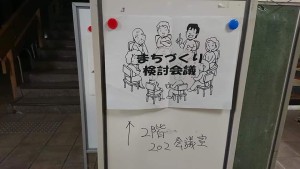 まちづくり
検討会議
↑ 2階
202 会議室